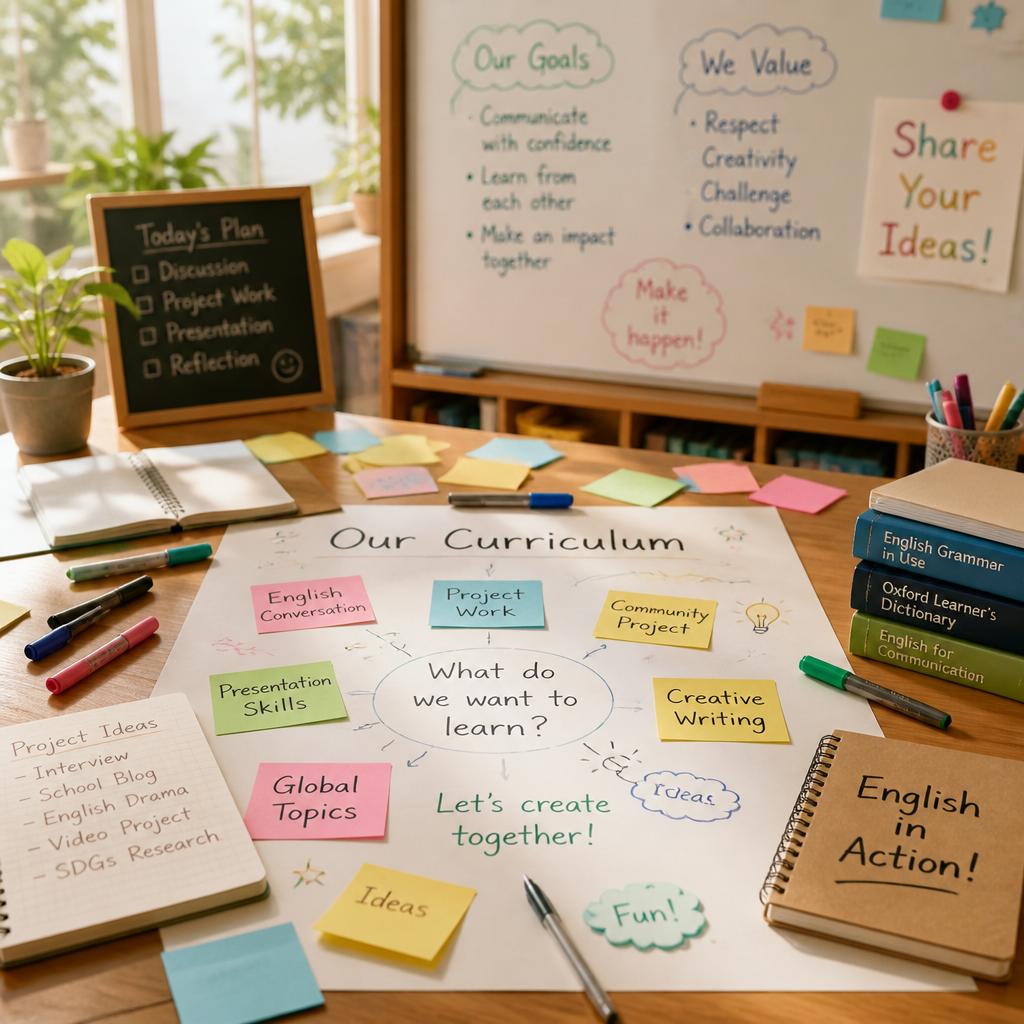 Our Goals
Communicate
with confidence
• Learn from
each other
• Make an impact
together
We Value
• Respect
Creativity
Challenge
• Collaboration
Make
it
happen!
Share
Your
Ideas!
Today's Plan
☐ Discussion
☐ Project Work
☐ Presentation
☐ Reflection
Our Curriculum
English
Conversation
Project
Work
Community
Project
Presentation
Skills
What do
we want to
learn?
Creative
Writing
Global
Topics
Let's create
together!
Ideas
Ideas
Fun!
Project Ideas
- Interview
- School Blog
- English Drama
- Video Project
- SDGs Research
English Grammar
in Use
Oxford Learner's
Dictionary
English for
Communication
English
in
Action!